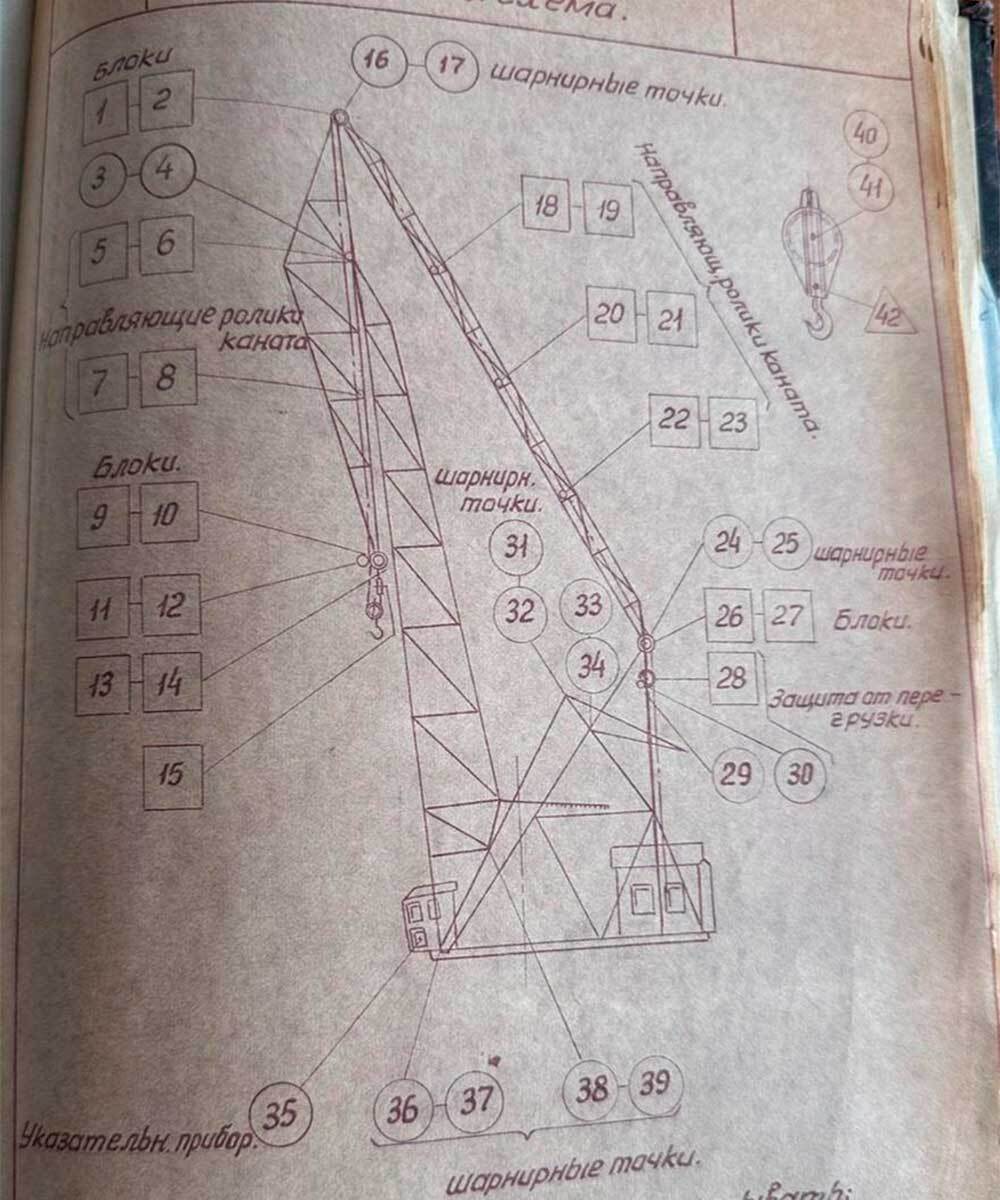 Блоки
1 2
3 4
5 6
Направляющие ролики
каната
7 8
Блоки.
9 10
11 12
13 14
15
16 17 шарнирные точки.
18 19
20 21
22 23
Направляющ. ролики каната.
40
41
42
шарнирн.
точки.
31
32
33
34
24 25 шарнирные
точки.
26 27 Блоки.
28
Защита от пере-
грузки.
29 30
Указательн. прибор. 35
36 37 38 39
шарнирные точки.